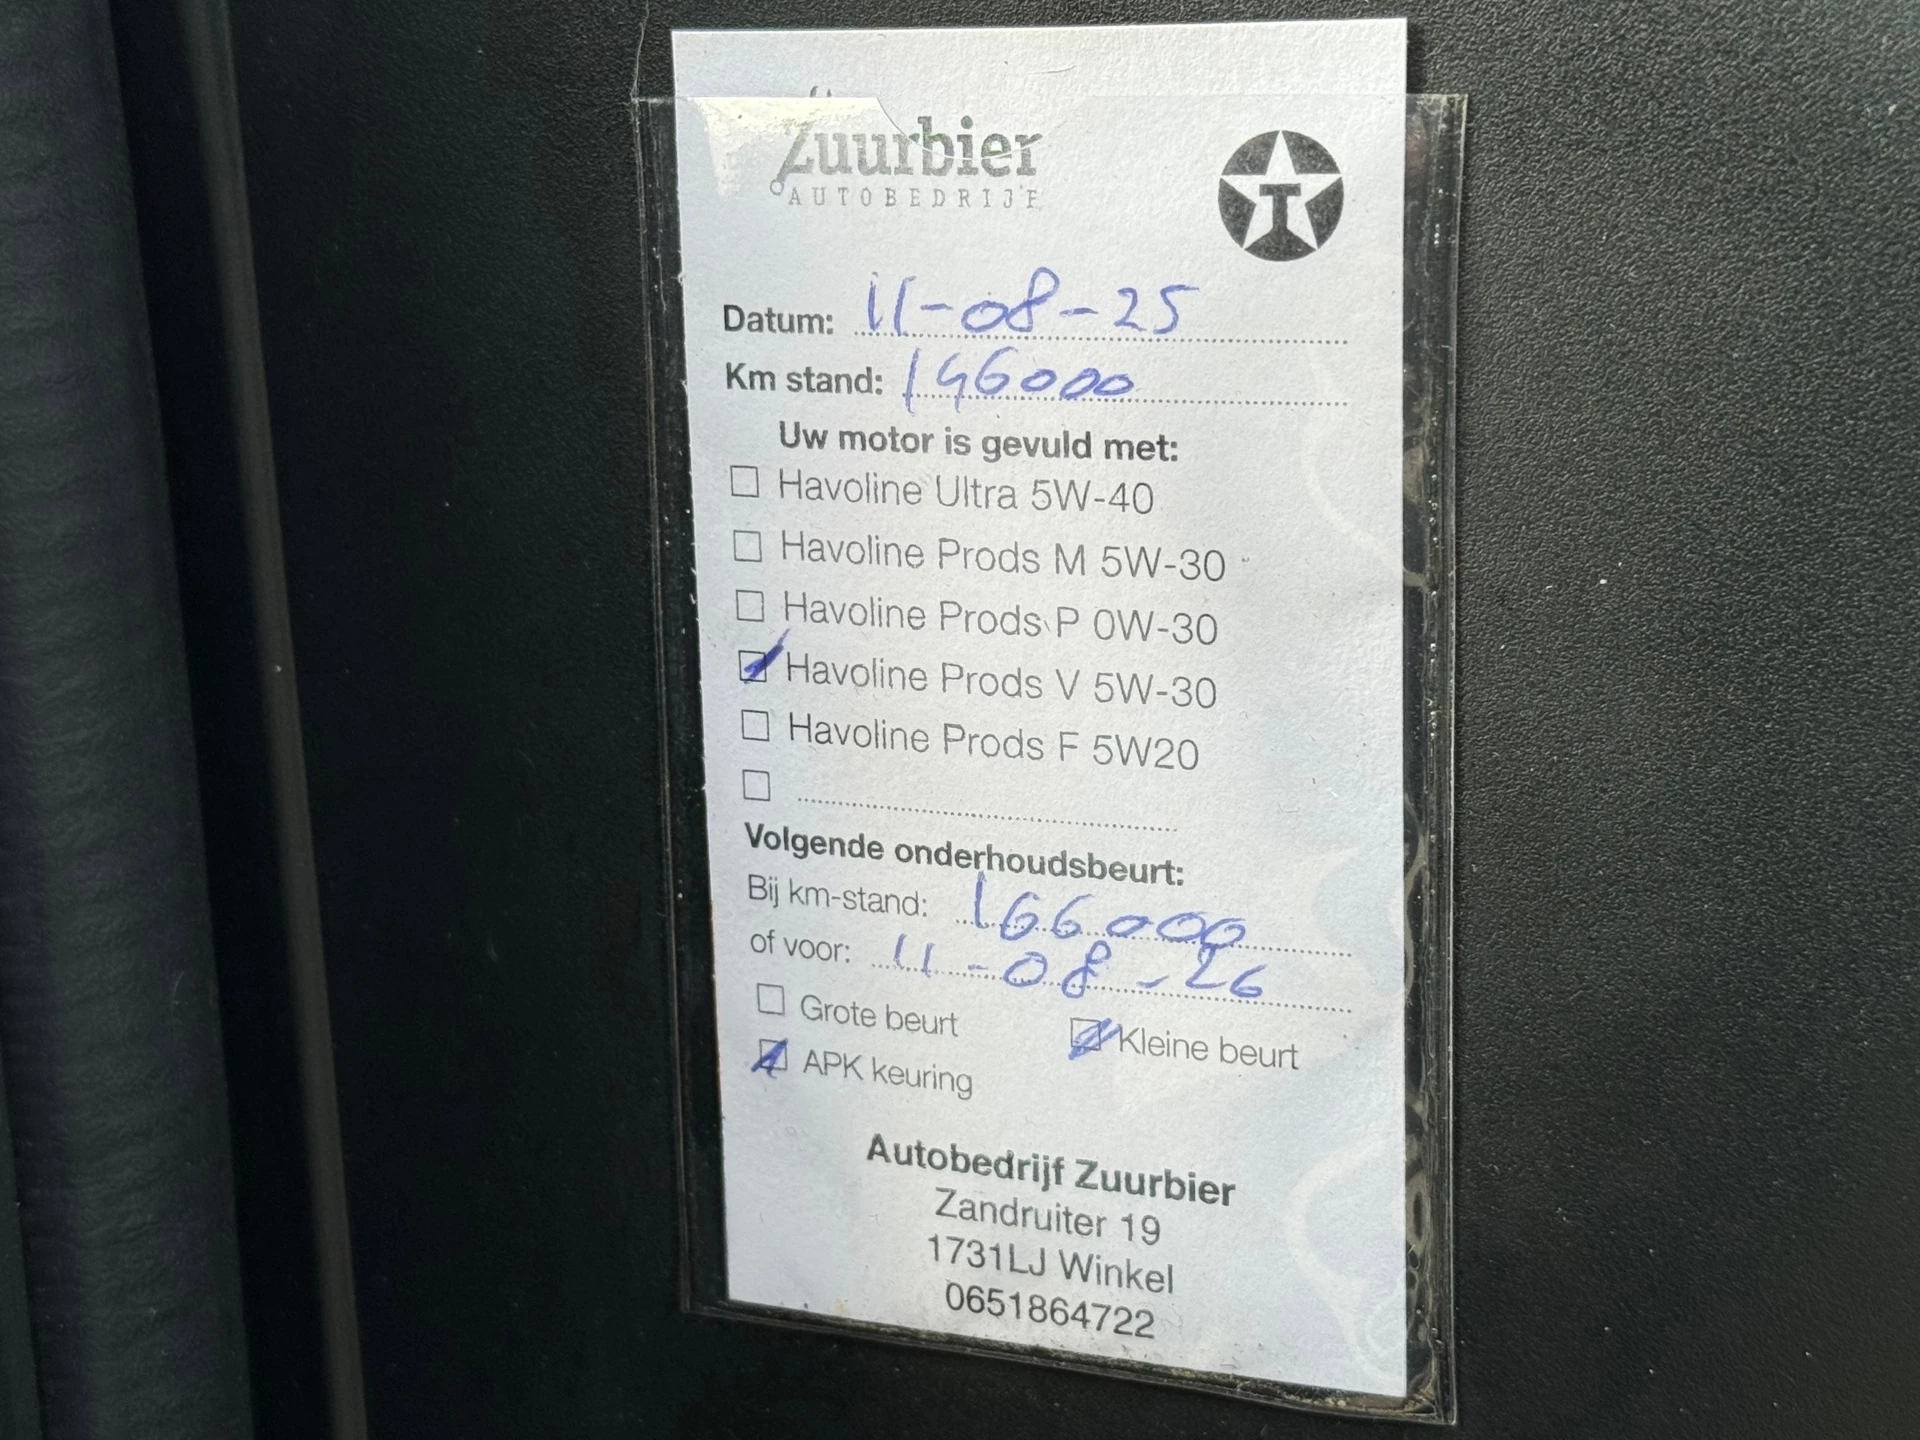 Zuurbier
AUTOBEDRIJF
T
Datum: 11-08-25
Km stand: 146000
Uw motor is gevuld met:
Havoline Ultra 5W-40
Havoline Prods M 5W-30
Havoline Prods P 0W-30
Havoline Prods V 5W-30
Havoline Prods F 5W20
Volgende onderhoudsbeurt:
Bij km-stand: 166000
of voor: 11-08-26
Grote beurt Kleine beurt
APK keuring
Autobedrijf Zuurbier
Zandruiter 19
1731LJ Winkel
0651864722